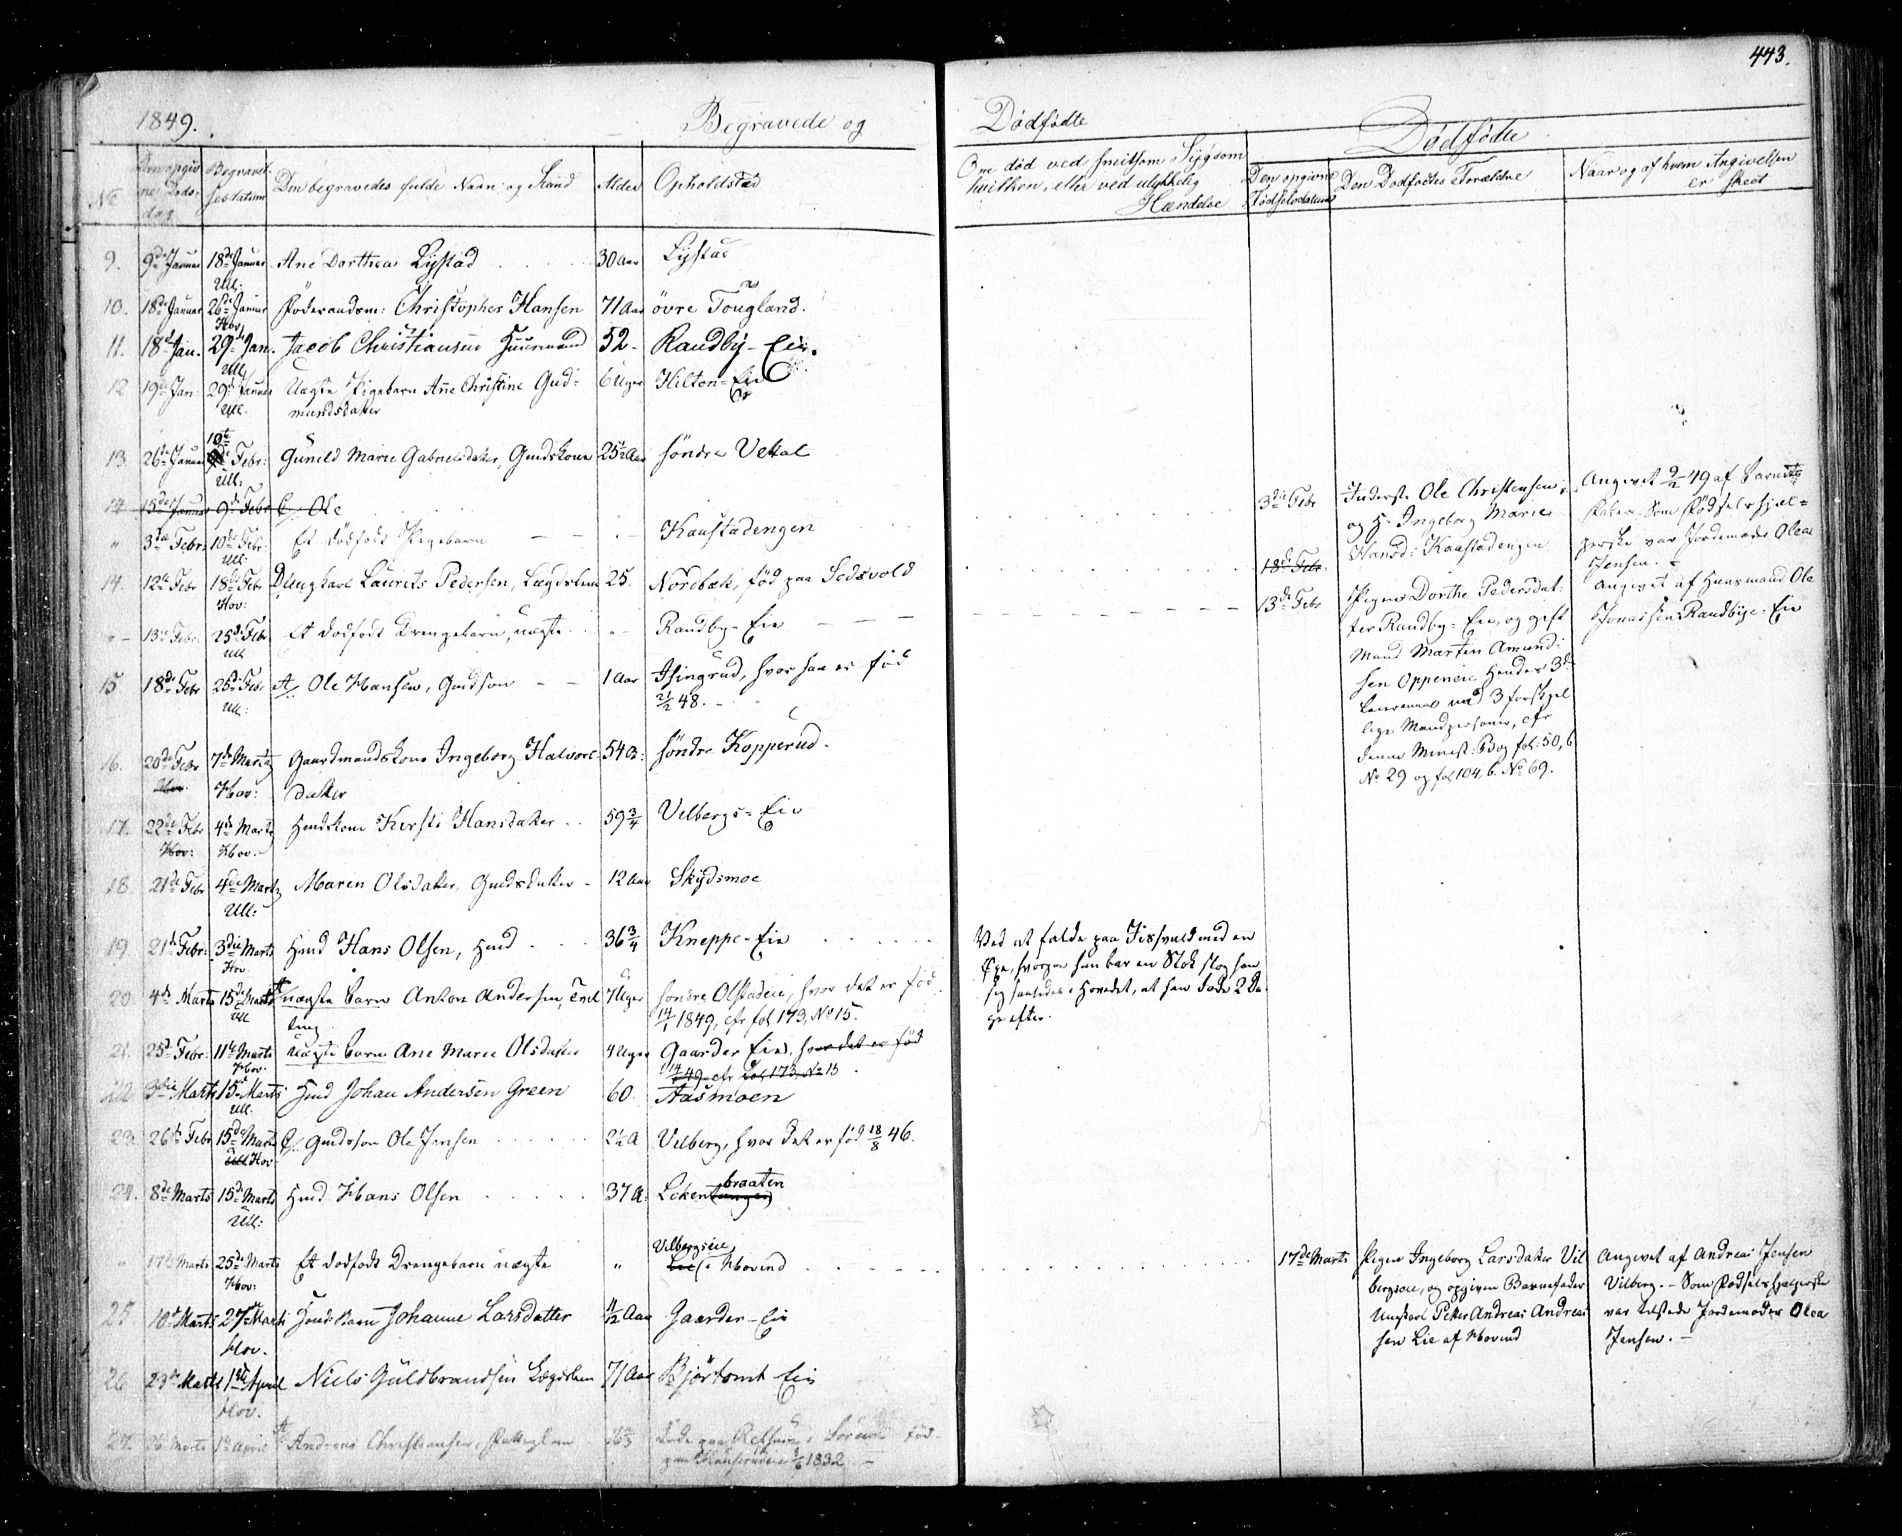 443.
1849. Begravede og Dødfødte
Dødfødte
No Den opgivne Døds-dag Begravelsesdatum Den begravedes fulde Navn og Stand Alder Opholdsted
Om død ved smitsom Sygdom
hvilken, eller ved ulykkelig
Hændelse
Den opgivne Fødselsdatum Den Dødfødtes Forældre Naar og af hvem Angivelsen
er skeet
9. 9de Januar 18de Januar Ane Dorthea Lystad 30 Aar Lystad
Ull:
10. 18de Januar 26de Januar Christopher Hansen 71 Aar øvre Tougland.
Hov
11. 18de Jan. 29de Jan. Jacob Christiansen Huusmand 52 - Randby-Eie.
Ull
12 19de Jan: 29de Januar Uægte Pigebarn Ane Christine Gud- 6 Uger Hilton-Eie
Ull. mundsdatter
10te
13. 26de Januar Febr: Gunild Marie Gabrielsdatter, Gmdskone 25½ Aar søndre Vetal
Ull.
14 15de Januar 9de Febr Ole
" 3die Febr: 10de Febr: Et dødfødt Pigebarn - - - Kaastadengen
Ull:
3die Febr Inderst Ole Christensen
og H. Ingeborg Marie
Hansd: Kaastadengen
Angivet 9/2 49 af Barnets
Fader. Som Fødselshjel-
perske var Jordemoder Olea
Jensen. -
14. 12te Febr 18de Febr Ungkarl Laurits Pedersen, Lægdslem 25. Nordbæk, fød paa Sedsvold
Hov:
18de Febr.
" - 13de Febr. 25de Febr Et dødfødt Drengebarn, uægte " - Randby-Eie - - -
Ull
13de Febr Pigen Dorthe Pedersdat-
ter Randby-Eie, og gift
Mand Martin Amund-
sen Oppeneie Hendes 3de
Leiermaal med 3 forskjel
lige Mandspersoner, cfr
denne Minist: Bog fol: 50, b
No 29 og fol 104, b. No 69.
Angivet af Huusmand Ole
Jonassen Randbye-Eie
15 18de Febr 25de Febr Ole Hansen, Gmdsøn - - 1 Aar Isingrud, hvor han er fød
Ull: 21/2 48. -
16. 20de Febr 7de Marts Gaardmandskone Ingeborg Halvors- 54 a: søndre Kopperud.
Hov. Hov: datter
17. 22de Febr 4de Marts Hmdskone Kirsti Hansdatter 59¾ Velbergs-Eie
Hov: Hov.
18. 21de Febr 4de Marts Maren Olsdatter, Gmdsdatter - 12 Aar Skydsmoe
Ull:
19. 21de Febr: 3die Marts Hmd Hans Olsen, Hmd 36¾ Kneppe-Eie
Hov.
Ved at falde paa Iissvuld med en
Øxe, hvorpaa han bar en Stok slog han
sig saaledes i Hovedet, at han døde 2 Da-
ge efter.
20. 4de Marts 15de Marts uægte Barn Anton Andersen, Tvil 7 Uger søndre Olstadeie, hvor det er fød
Ull ling 14/1 1849, cfr fol 173, No 15.
21. 25de Febr: 11te Marts uægte Barn Ane Marie Olsdatter 4 Uger Gaarder Eie, hvor det er fød
Hov. 14/1 49 cfr fol 173, No 15
22. 3die Marts 15de Marts Hmd Johan Andersen Green 60. Aasmoen
Ull.
23. 26de Febr 15de Marts Gmdssøn Ole Jensen 2½ A Velberg, hvor det er fød 18/8 46.
Ull Hov
24. 8de Marts 15de Marts Hmd Hans Olsen 37 A: Lekenbraaten
Ull:
" 17de Marts 25de Marts Et dødfødt Drengebarn uægte " Vilbergseie
Hov: i Hovind
17de Marts Pigen Ingeborg Larsdatter Vil
bergseie, og opgiven Barnefader
Ungkarl Petter Andreas Andrea
sen Lie af Hovind
Angivet af Andreas Jensen
Vilberg. - Som Fødselshjelperske
var tilstede Jordemoder Olea
Jensen. -
25. 10de Marts 27de Marts Johanne Larsdatter Aar Gaarder-Eie
Hov.
26 23de Marts 1ste April Niels Guldbrandsen Lægdslem 71 Aar Bjørtomt Eie
Hov.
27. 26de Marts 1ste April Andreas Christiansen, 16 Døde paa fød
paa 1832 -